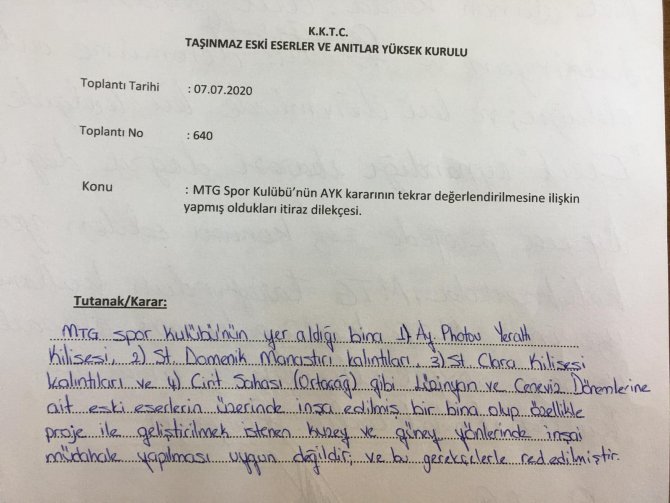 K.K.T.C.
TAŞINMAZ ESKİ ESERLER VE ANITLAR YÜKSEK KURULU
Toplantı Tarihi : 07.07.2020
Toplantı No : 640
Konu : MTG Spor Kulübü'nün AYK kararının tekrar değerlendirilmesine ilişkin
yapmış oldukları itiraz dilekçesi.
Tutanak/Karar:
MTG spor kulübü'nün yer aldığı bina 1) Ay. Photou Yeraltı
Kilisesi, 2) St. Domenik Manastırı kalıntıları, 3) St Clara Kilisesi
kalıntıları ve 4) Cirit Sahası (Ortaçağ) gibi Lüzinyan ve Ceneviz Dönemlerine
ait eski eserlerin üzerinde inşa edilmiş bir bina olup özellikle
proje ile geliştirilmek istenen kuzey ve güney yönlerinde inşai
müdahale yapılması uygun değildir, ve bu gerekçilerle red edilmiştir.